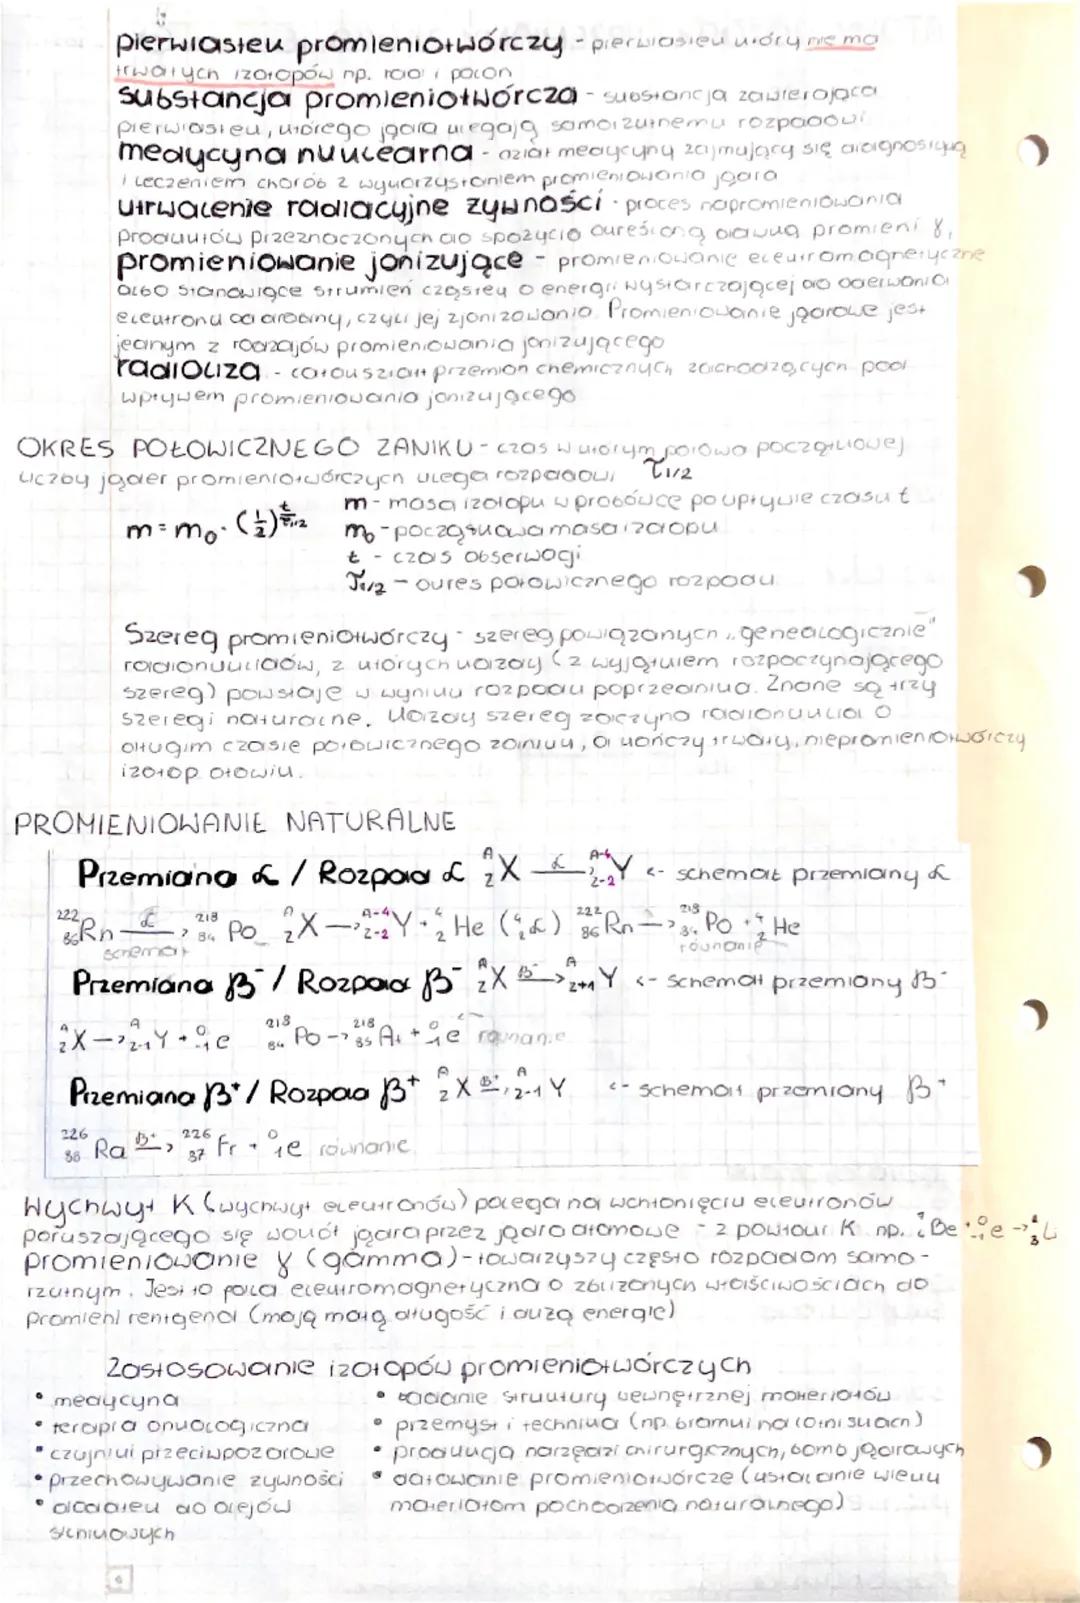 pierwiastek promieniotwórczy - pierwiastek który nie ma
trwałych izotopów np. rad i polon
substancja promieniotwórcza - substancja zawierająca
pierwiastek, którego jądra ulegają samorzutnemu rozpadowi
medycyna nuklearna - dział medycyny zajmujący się diagnostyką
i leczeniem chorób z wykorzystaniem promieniowania jądra
utrwalenie radiacyjne żywności - proces napromieniowania
produktów przeznaczonych do spożycia określoną dawką promieni γ,
promieniowanie jonizujące - promieniowanie elektromagnetyczne
albo stanowiące strumień cząstek o energii wystarczającej do oderwania
elektronu od drobiny, czyli jej zjonizowania. Promieniowanie jądrowe jest
jednym z rodzajów promieniowania jonizującego
radioliza - całokształt przemian chemicznych zachodzących pod
wpływem promieniowania jonizującego
OKRES POŁOWICZNEGO ZANIKU - czas w którym połowa początkowej
liczby jąder promieniotwórczych ulega rozpadowi τ1/2
m = m₀ · (1/2)^(t/τ1/2)
m - masa izotopu w probówce po upływie czasu t
m₀ - początkowa masa izotopu
t - czas obserwacji
τ1/2 - okres połowicznego rozpadu
Szereg promieniotwórczy - szereg powiązanych „genealogicznie"
radionuklidów, z których każdy (z wyjątkiem rozpoczynającego
szereg) powstaje w wyniku rozpadu poprzednika. Znane są trzy
szeregi naturalne. Każdy szereg zaczyna radionuklid o
długim czasie połowicznego zaniku, a kończy trwały, niepromieniotwórczy
izotop ołowiu.
PROMIENIOWANIE NATURALNE
Przemiana α / Rozpad α ᴬ₂X —α→ ᴬ⁻⁴₂₋₂Y <- schemat przemiany α
²²²₈₆Rn —α→ ²¹⁸₈₄Po ᴬ₂X —> ᴬ⁻⁴₂₋₂Y + ⁴₂He (⁴₂α) ²²²₈₆Rn —> ²¹⁸₈₄Po + ⁴₂He
schemat równanie
Przemiana β⁻ / Rozpad β⁻ ᴬ₂X —β⁻→ ᴬ₂₊₁Y <- schemat przemiany β⁻
ᴬ₂X —> ᴬ₂₋₁Y + ⁰₋₁e ²¹⁸₈₄Po -> ²¹⁸₈₅At + ⁰₋₁e⁻ równanie
Przemiana β⁺ / Rozpad β⁺ ᴬ₂X —β⁺→ ᴬ₂₋₁Y <- schemat przemiany β⁺
²²⁶₈₈Ra —β⁺→ ²²⁶₈₇Fr + ⁰₁e równanie
Wychwyt K (wychwyt elektronów) polega na wchłonięciu elektronów
poruszającego się wokół jądra przez jądro atomowe - z powłoki K np. Be + ⁰₋₁e -> ₃Li
promieniowanie γ (gamma) - towarzyszy często rozpadom samo-
rzutnym. Jest to fala elektromagnetyczna o zbliżonych właściwościach do
promieni rentgena (mają małą długość i dużą energię)
Zastosowanie izotopów promieniotwórczych
• medycyna
• terapia onkologiczna
• czujniki przeciwpożarowe
• przechowywanie żywności
• dodatek do olejów
silnikowych
• badanie struktury wewnętrznej materiałów
• przemysł i technika (np. bramki na lotniskach)
• produkcja narzędzi chirurgicznych, bomb jądrowych
• datowanie promieniotwórcze (ustalanie wieku
materiałom pochodzenia naturalnego)